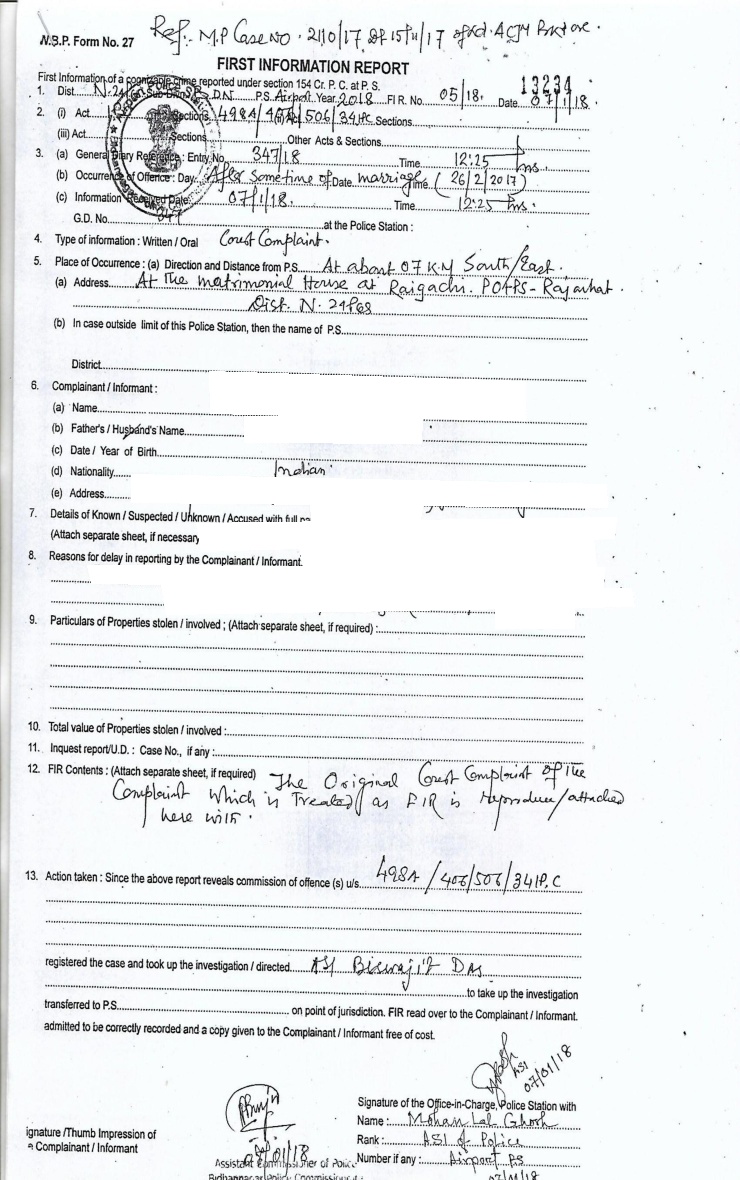 Ref:- M.P Case No. 2110/17, DT 15/11/17 of Ld. ACJM
N.B.P. Form No. 27
FIRST INFORMATION REPORT
First Information of a cognizable crime reported under section 154 Cr. P. C. at P. S.
13234
1. Dist. N-24 Sub-Divn D.N. P.S. Airport Year 2018 FIR. No. 05/18. Date 07/1/18.
2. (i) Act Sections 498A/406/506/34 IPC Sections
(iii) Act Sections Other Acts & Sections
3. (a) General Diary Reference : Entry No. 347/18 Time 12:25 hrs.
(b) Occurrence of Offence : Day After sometime of Date marriage Time (26/2/2017)
(c) Information Received Date: 07/1/18. Time 12:25 hrs.
G.D. No. 347 at the Police Station :
4. Type of information : Written / Oral Court Complaint.
5. Place of Occurrence : (a) Direction and Distance from P.S. At about 07 K.M South/East.
(a) Address At the matrimonial House at Raigachi. PO+PS- Rajarhat.
Dist. N. 24 PGS
(b) In case outside limit of this Police Station, then the name of P.S.
District
6. Complainant / Informant :
(a) Name
(b) Father's / Husband's Name
(c) Date / Year of Birth
(d) Nationality Indian
(e) Address
7. Details of Known / Suspected / Unknown / Accused with full
(Attach separate sheet, if necessary
8. Reasons for delay in reporting by the Complainant / Informant.
9. Particulars of Properties stolen / involved ; (Attach separate sheet, if required) :
10. Total value of Properties stolen / involved :
11. Inquest report/U.D. : Case No., if any :
12. FIR Contents : (Attach separate sheet, if required) The Original Court Complaint of the
Complaint which is Treated as FIR is Reproduce/attached
here with.
13. Action taken : Since the above report reveals commission of offence (s) u/s. 498A/406/506/34 IP.C
registered the case and took up the investigation / directed ASI Biswajit Das
to take up the investigation
transferred to P.S. on point of jurisdiction. FIR read over to the Complainant / Informant.
admitted to be correctly recorded and a copy given to the Complainant / Informant free of cost.
ASI
07/01/18
Signature of the Office-in-Charge, Police Station with
Name : Mohan Lal Ghosh
Rank : ASI of Police
Number if any : Airport PS
07/01/18
ignature /Thumb Impression of
Complainant / Informant
Assistant Commissioner of Police
Bidhannagar Police Commissionerate